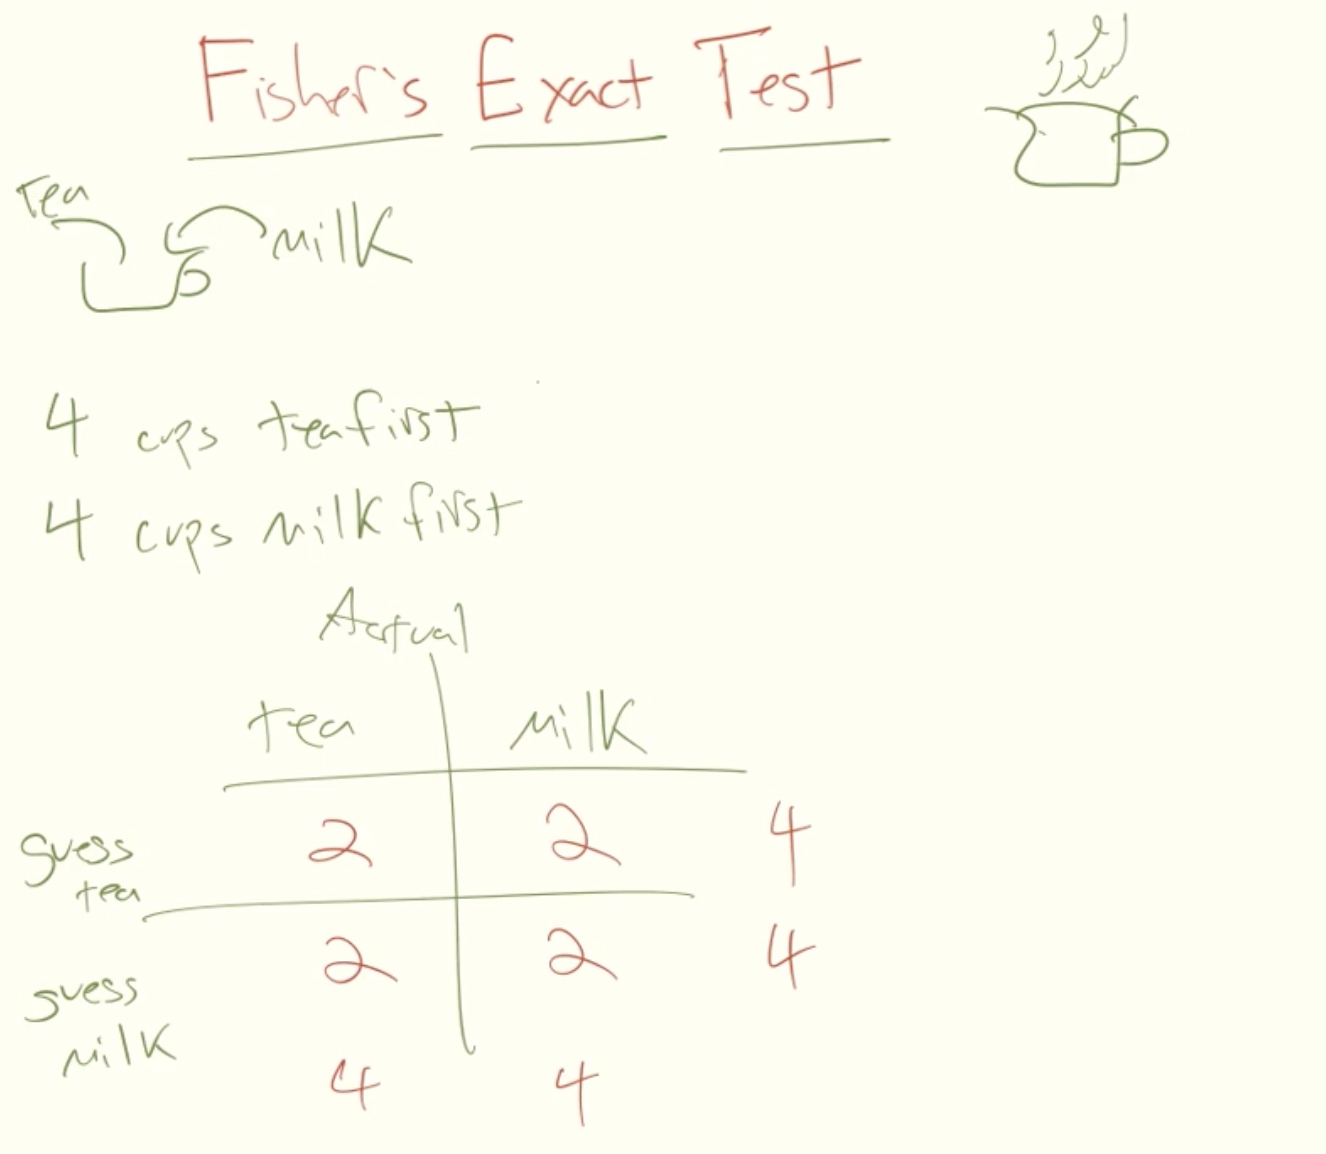 Fisher's Exact Test
Tea
Milk
4 cups tea first
4 cups milk first
Actual
tea milk
guess tea 2 2 4
guess milk 2 2 4
4 4